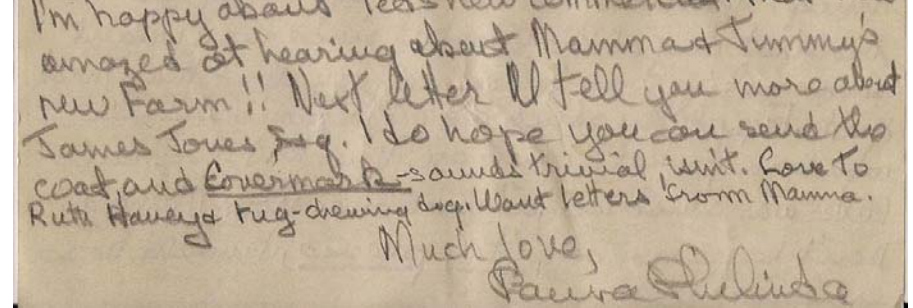 I'm happy about new
amazed at hearing about Mamma & Timmy's
new Farm!! Next letter I'll tell you more about
James Jones, Esq. I do hope you can send the
coat, and Covermark - sounds trivial, isn't. Love to
Ruth Havey & rug-chewing dog. Want letters from Mamma.
Much love,